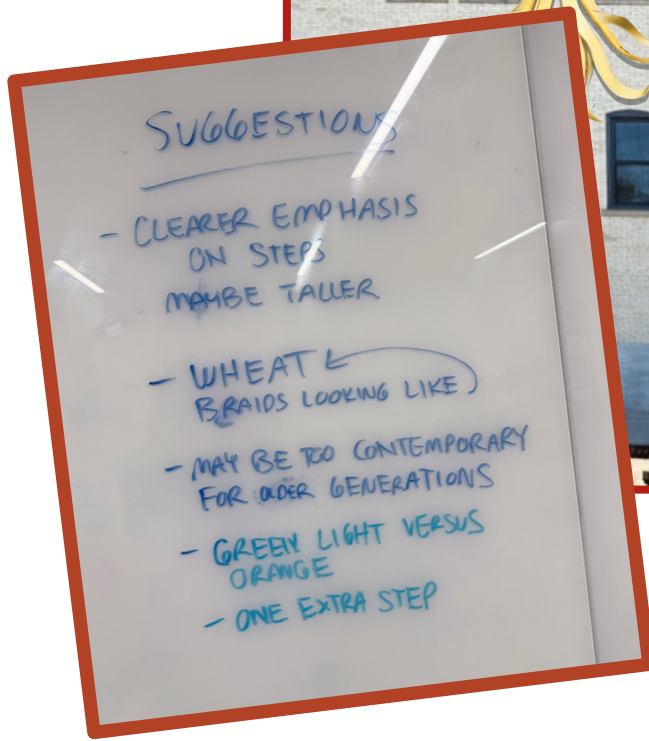 SUGGESTIONS
- CLEARER EMPHASIS
ON STEPS
MAYBE TALLER
- WHEAT
BRAIDS LOOKING LIKE
- MAY BE TOO CONTEMPORARY
FOR OLDER GENERATIONS
- GREEN LIGHT VERSUS
ORANGE
- ONE EXTRA STEP